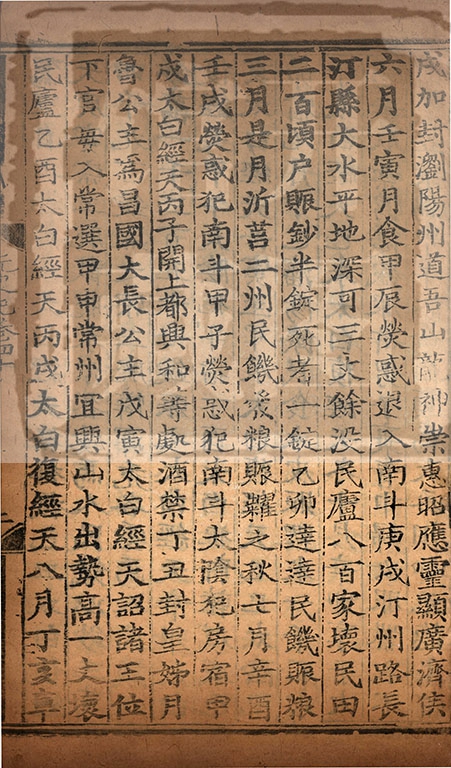 戍加封瀏陽州道吾山龍神崇惠昭應靈顯廣濟侯
六月壬寅月食甲辰熒惑退入南斗庚戌汀州路長
汀縣大水平地深可三丈餘没民廬八百家壞民田
二百頃户賑鈔半錠死者一錠乙卯達達民饑賑糧
三月是月沂莒二州民饑發粮賑糶之秋七月辛酉
壬戌熒惑犯南斗甲子熒惑犯南斗太隂犯房宿甲
戌太白經天丙子開上都興和等處酒禁丁丑封皇姊月
魯公主爲昌國大長公主戊寅太白經天詔諸王位
下官毋入常選甲申常州宜興山水出勢髙一丈壞
民廬乙酉太白經天丙戌太白復經天八月丁亥車